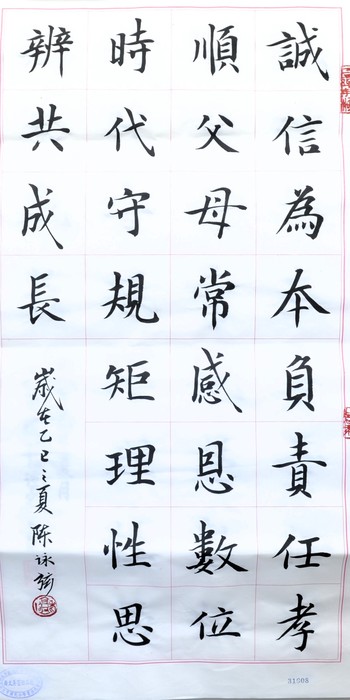 誠信為本負責任孝
順父母常感恩數位
時代守規矩理性思
辨共成長
歲在乙巳之夏 陈詠
31068